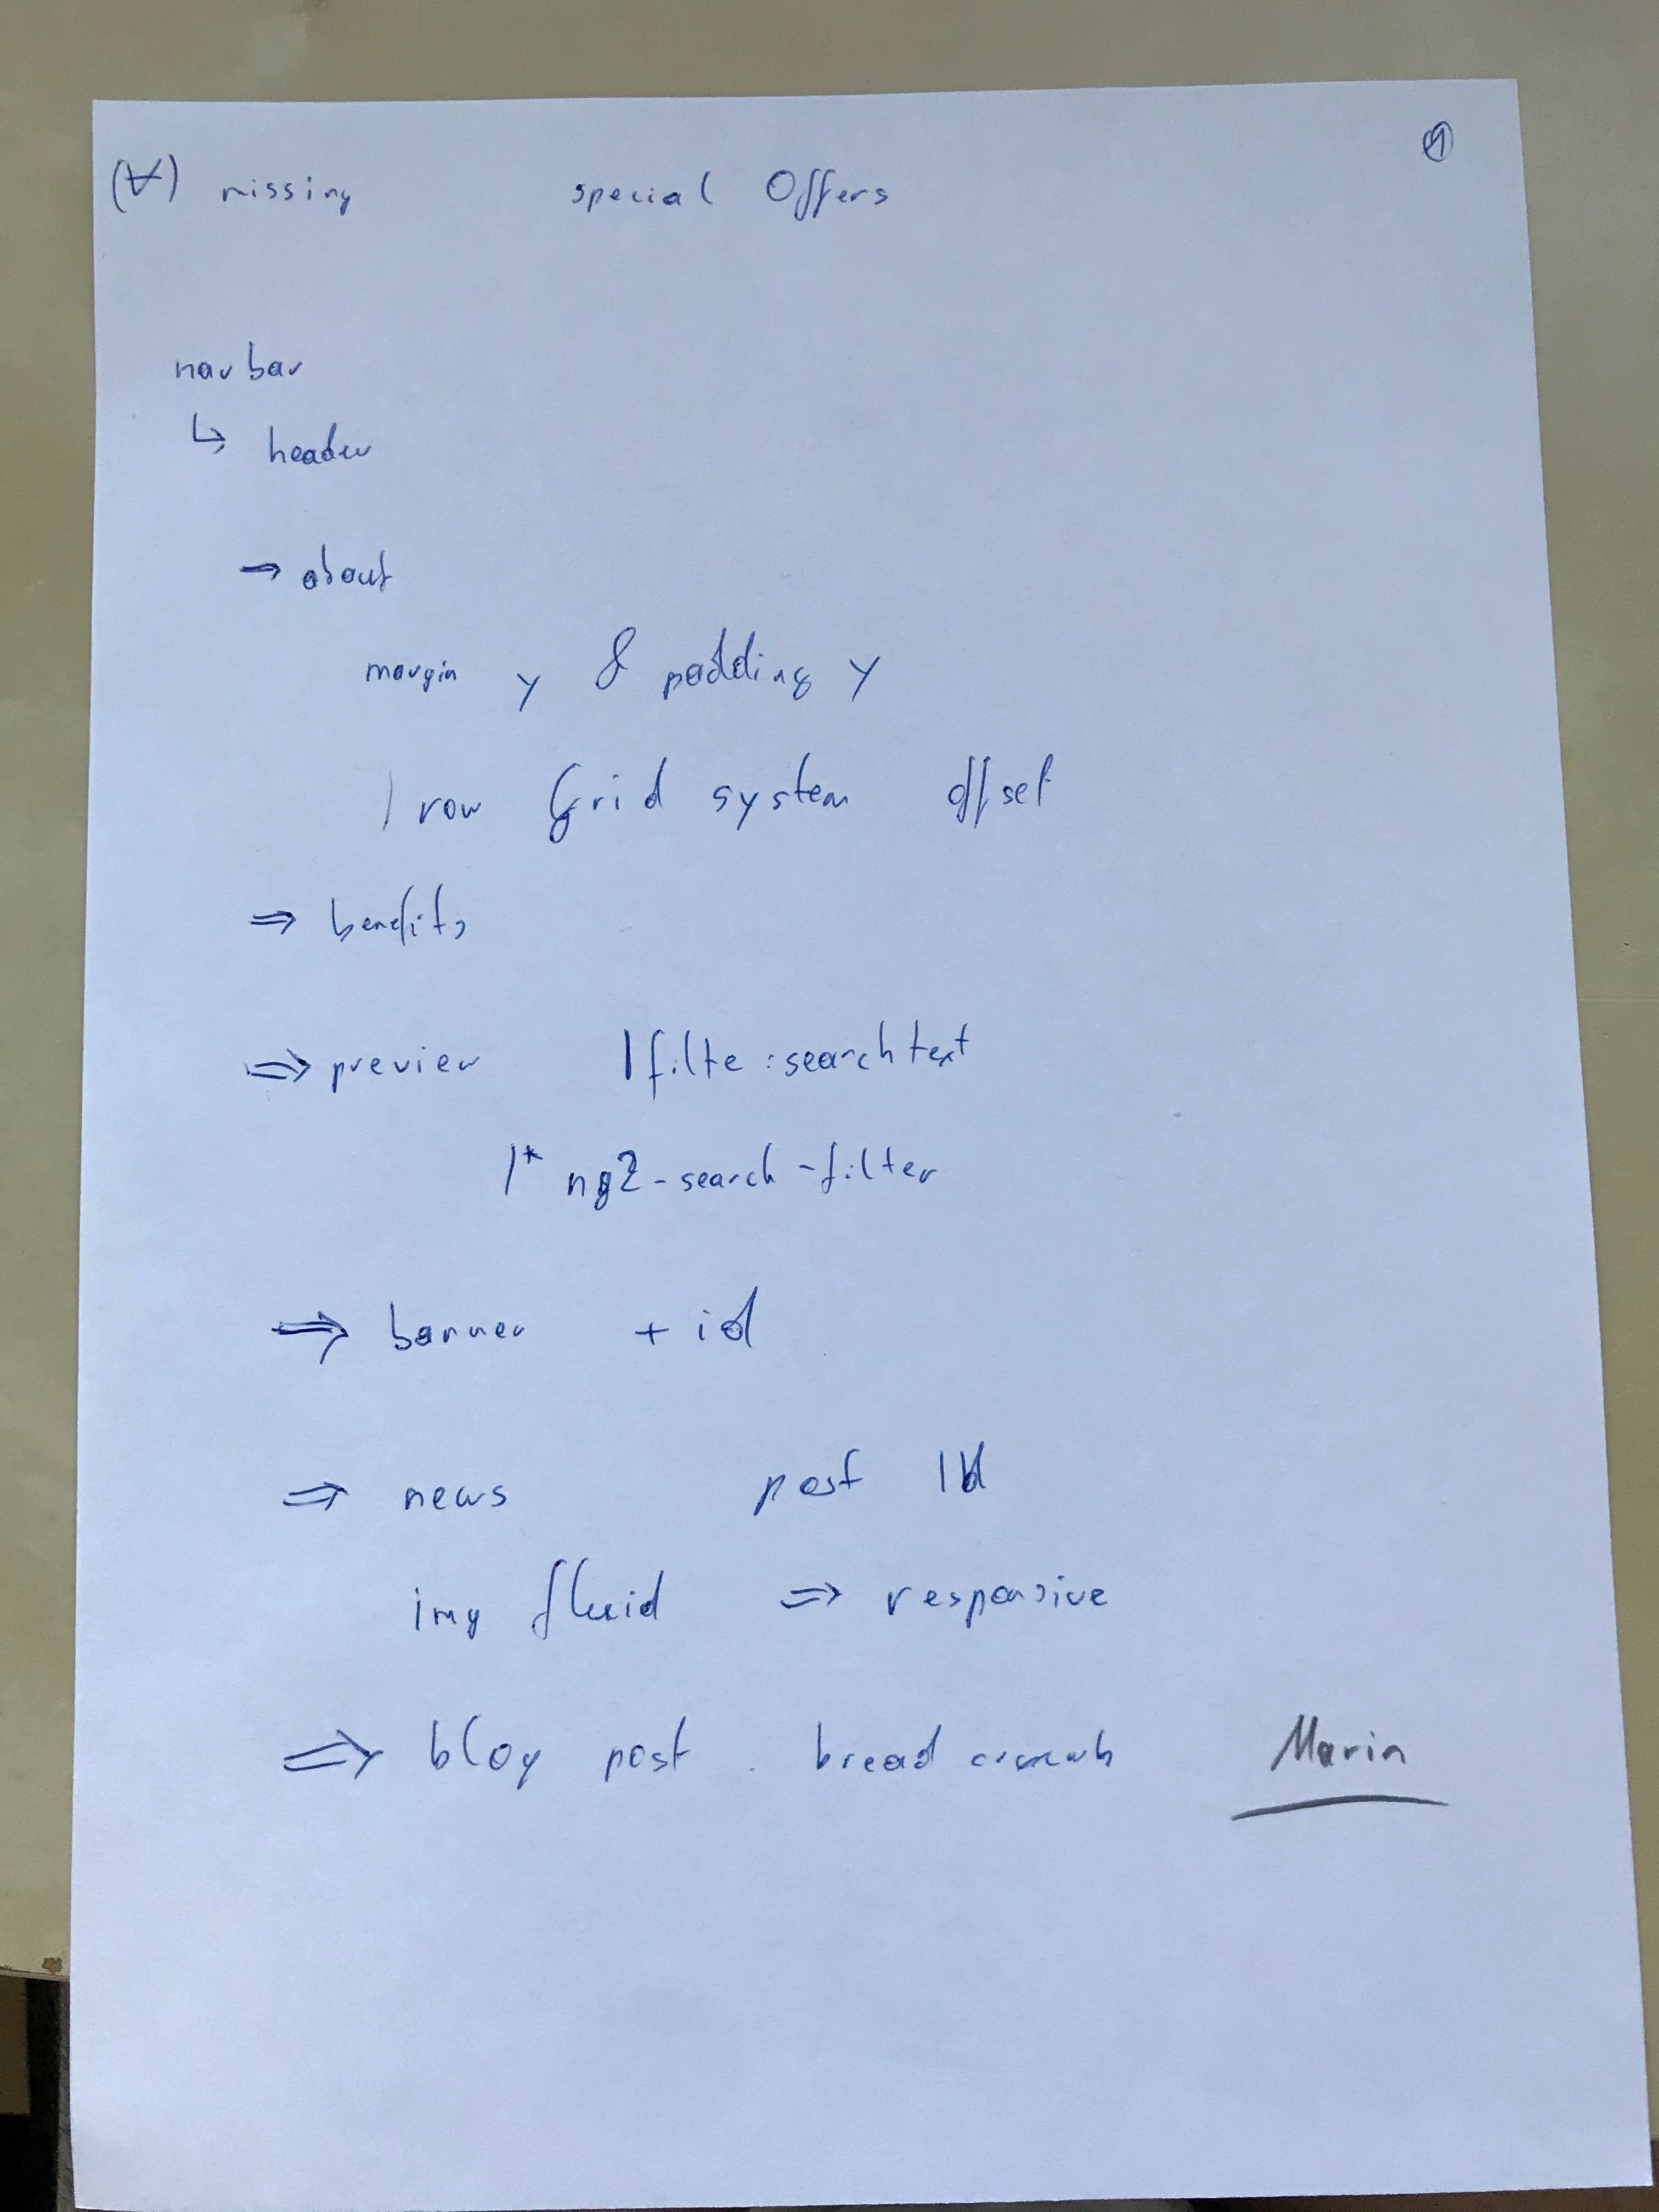 ①
(∀) missing special Offers
navbar
↳ header
→ about
margin y & padding y
/ row Grid system offset
⇒ benefits
⇒ preview | filte : searchtext
/* ng2-search-filter
⇒ banner + id
⇒ news post Id
img fluid ⇒ responsive
⇒ blog post . bread crumb Marin